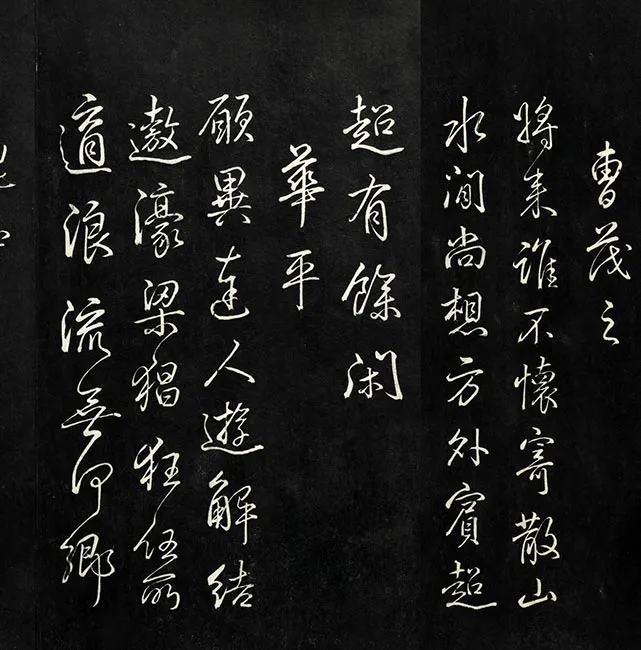 曹茂之
將來誰不懷寄散山
水間尚想方外賓超
超有餘閑
華平
願異達人遊解結
遨濠梁猖狂任所
適浪流無何鄉